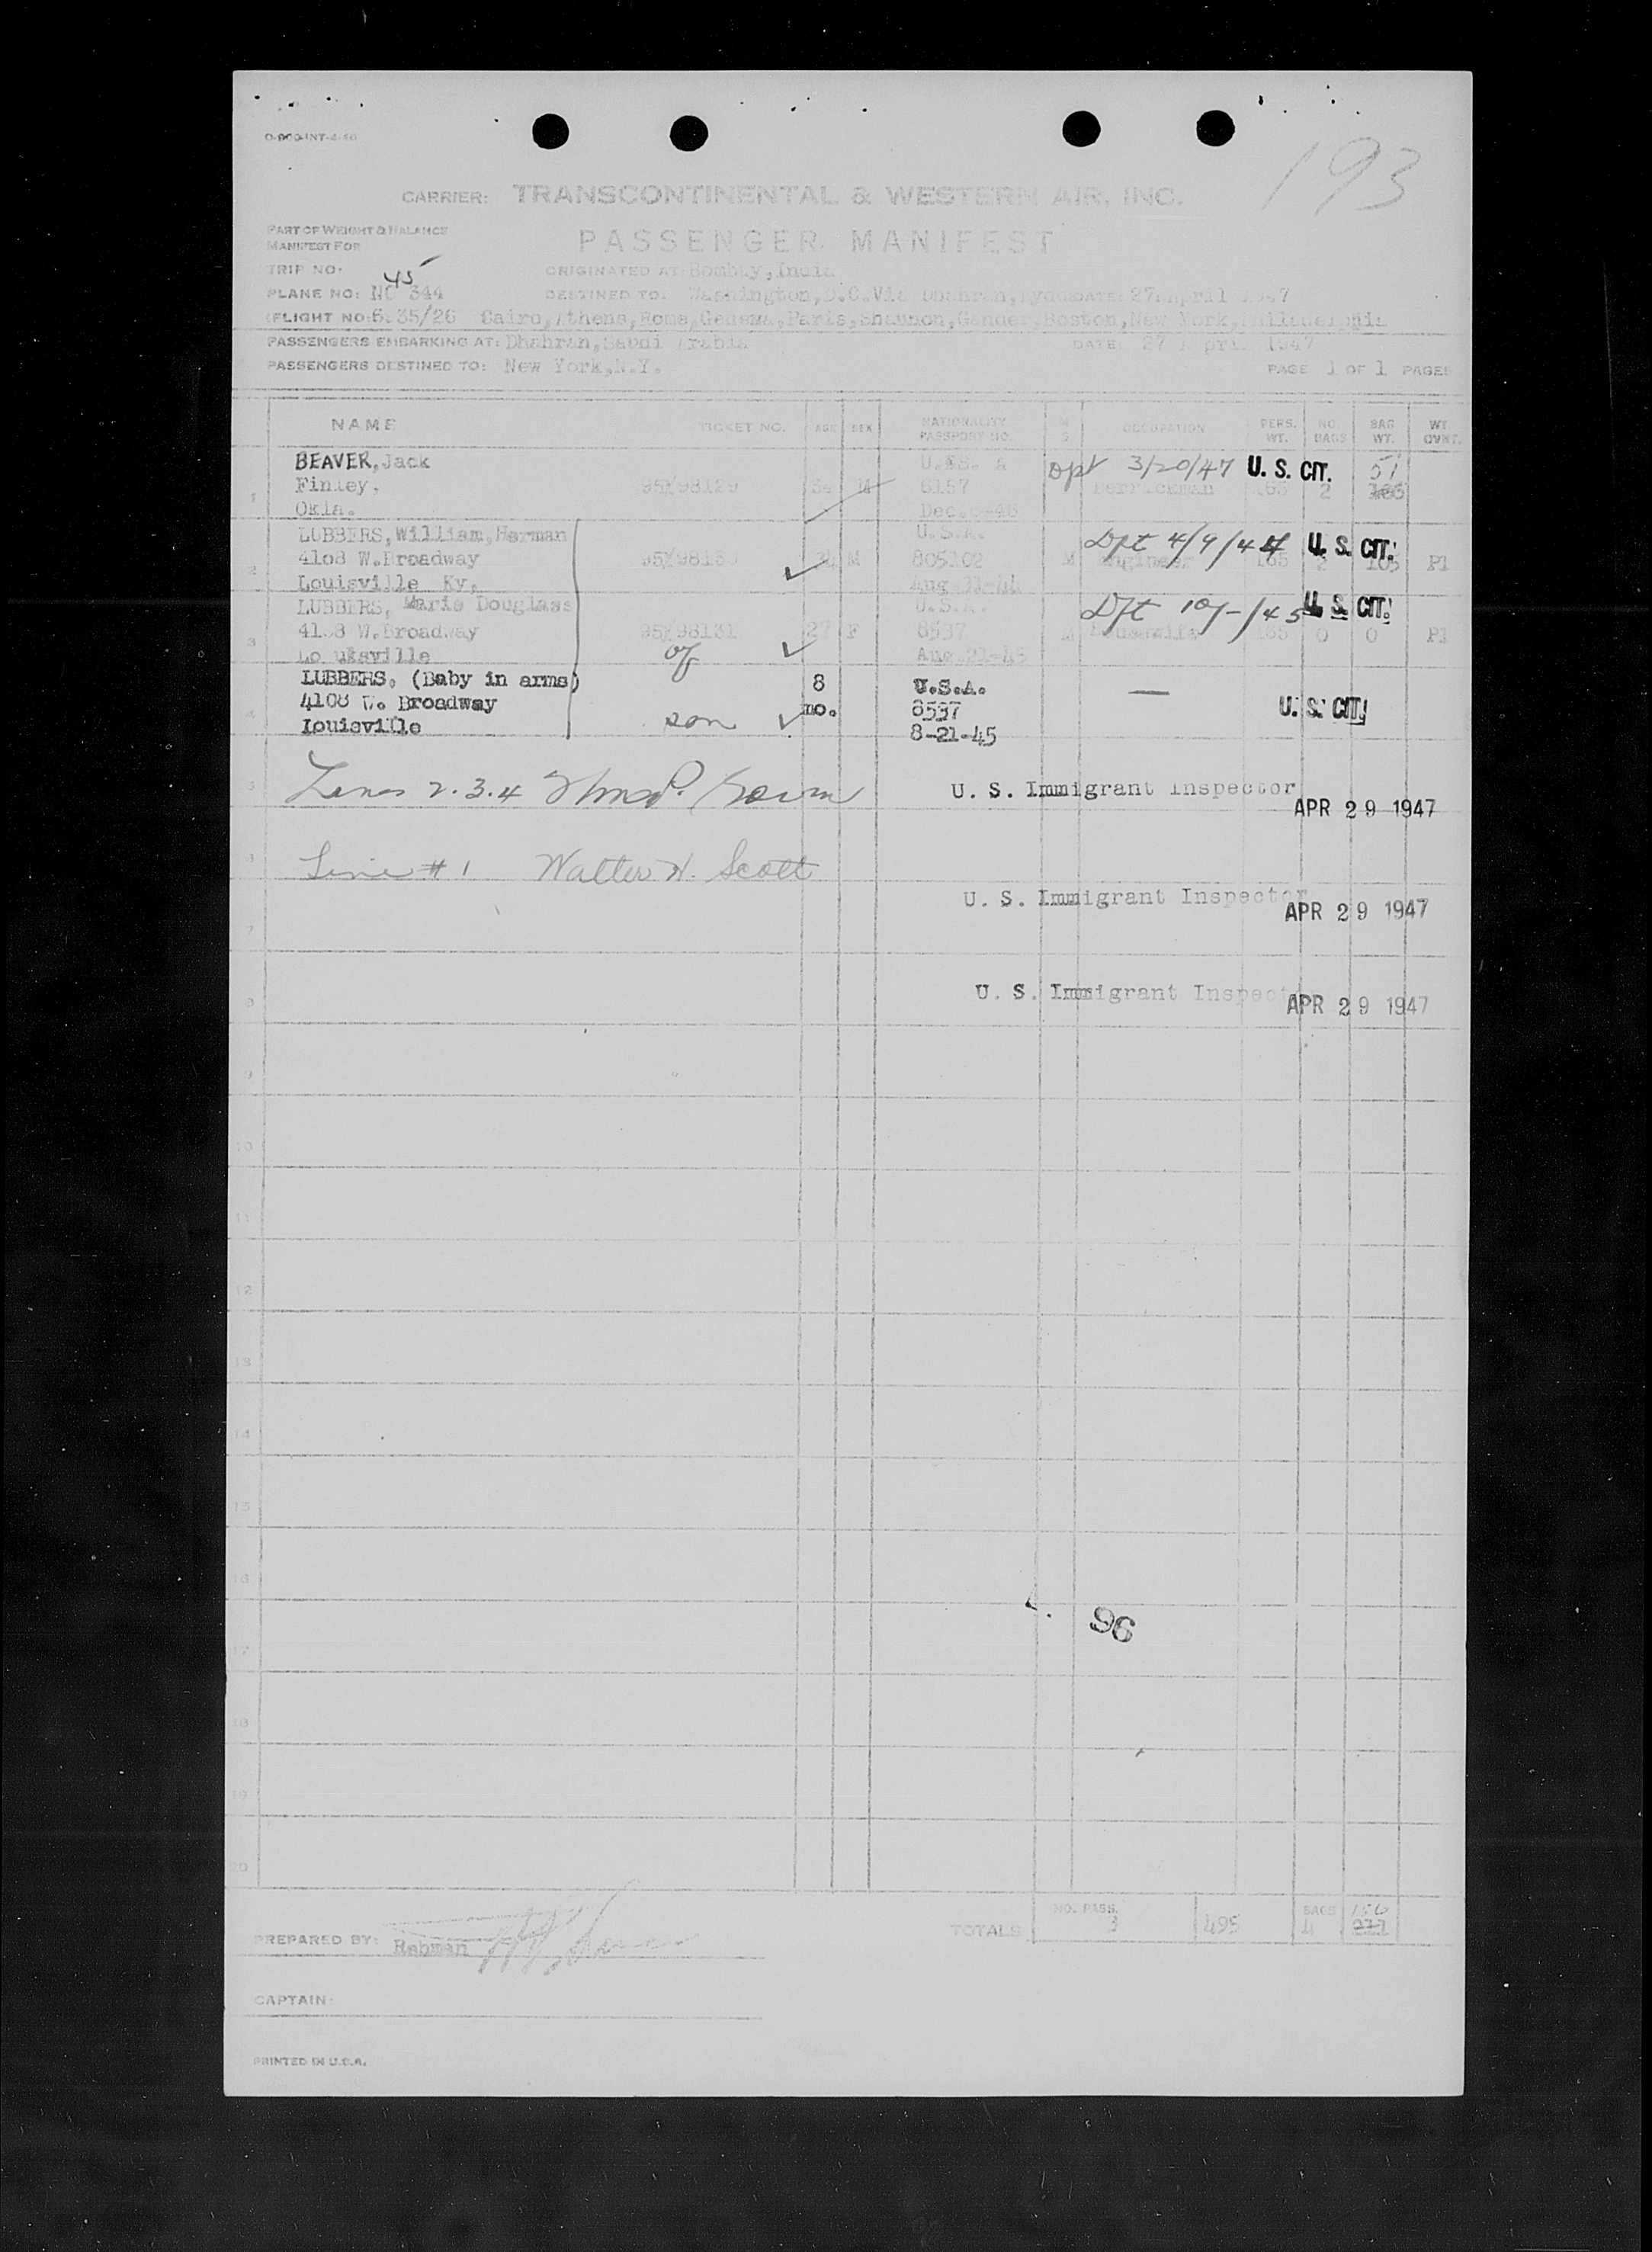 193
CARRIER: TRANSCONTINENTAL & WESTERN AIR, INC.
PART OF WEIGHT & BALANCE
MANIFEST FOR
PASSENGER MANIFEST
TRIP NO. 45 ORIGINATED AT: Bombay, India
PLANE NO: NC 344 DESTINED TO: Washington, D.C. Via Dhahran, DATE: 27 April 1947
FLIGHT NO: 35/26 Cairo, Athens, Rome, Geneva, Paris, Shannon, Gander, Boston, New York, Philadelphia
PASSENGERS EMBARKING AT: Dhahran, Saudi Arabia DATE: 27 April 1947
PASSENGERS DESTINED TO: New York, N.Y. PAGE 1 OF 1 PAGES
NAME TICKET NO. AGE SEX NATIONALITY PASSPORT NO. M S OCCUPATION PERS. WT. NO. BAGS BAG WT. WT. OVNT.
BEAVER, Jack U.S. A Dpt 3/20/47 U. S. CIT. 51
1 Finley, 95X98129 M 6157 2
Okla. Dec.
LUBBERS, William, Herman U.S.A. Dpt 4/9/44 U. S. CIT.
2 4108 W. Broadway M 805302 M Engineer 165 2 105 P1
Louisville Ky,
LUBBERS, Marie Douglass U.S.A. Dpt 10/-/45 U. S. CIT.
3 W. Broadway 95X98131 27 F 8537 M Housewife 165 0 0 P1
Lo uksville of Aug 21-45
LUBBERS. (Baby in arms) 8 U.S.A. — U. S. CIT.
4 4108 W. Broadway son mo. 8537
Louisville 8-21-45
5 Lines 2.3.4 U. S. Immigrant Inspector APR 29 1947
6 Line # 1 Walter H. Scott
U. S. Immigrant Inspector APR 29 1947
7
8 U. S. Immigrant Inspector APR 29 1947
9
10
11
12
13
14
15
16
96
17
18
19
20
TOTALS NO. PASS. 3 495 BAGS 4 156 271
PREPARED BY: Rehman
CAPTAIN:
PRINTED IN U.S.A.